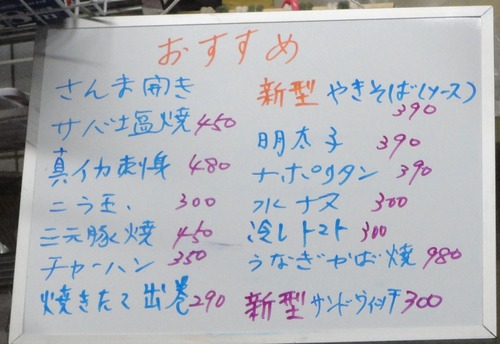 おすすめ
さんま開き
サバ塩焼 450
真イカ刺身 480
ニラ玉 300
三元豚焼 450
チャーハン 350
焼きたて出巻 290
新型 やきそば(ソース) 390
明太子 390
ナポリタン 390
水ナス 300
冷しトマト 300
うなぎかば焼 980
新型 サンドウィッチ 300